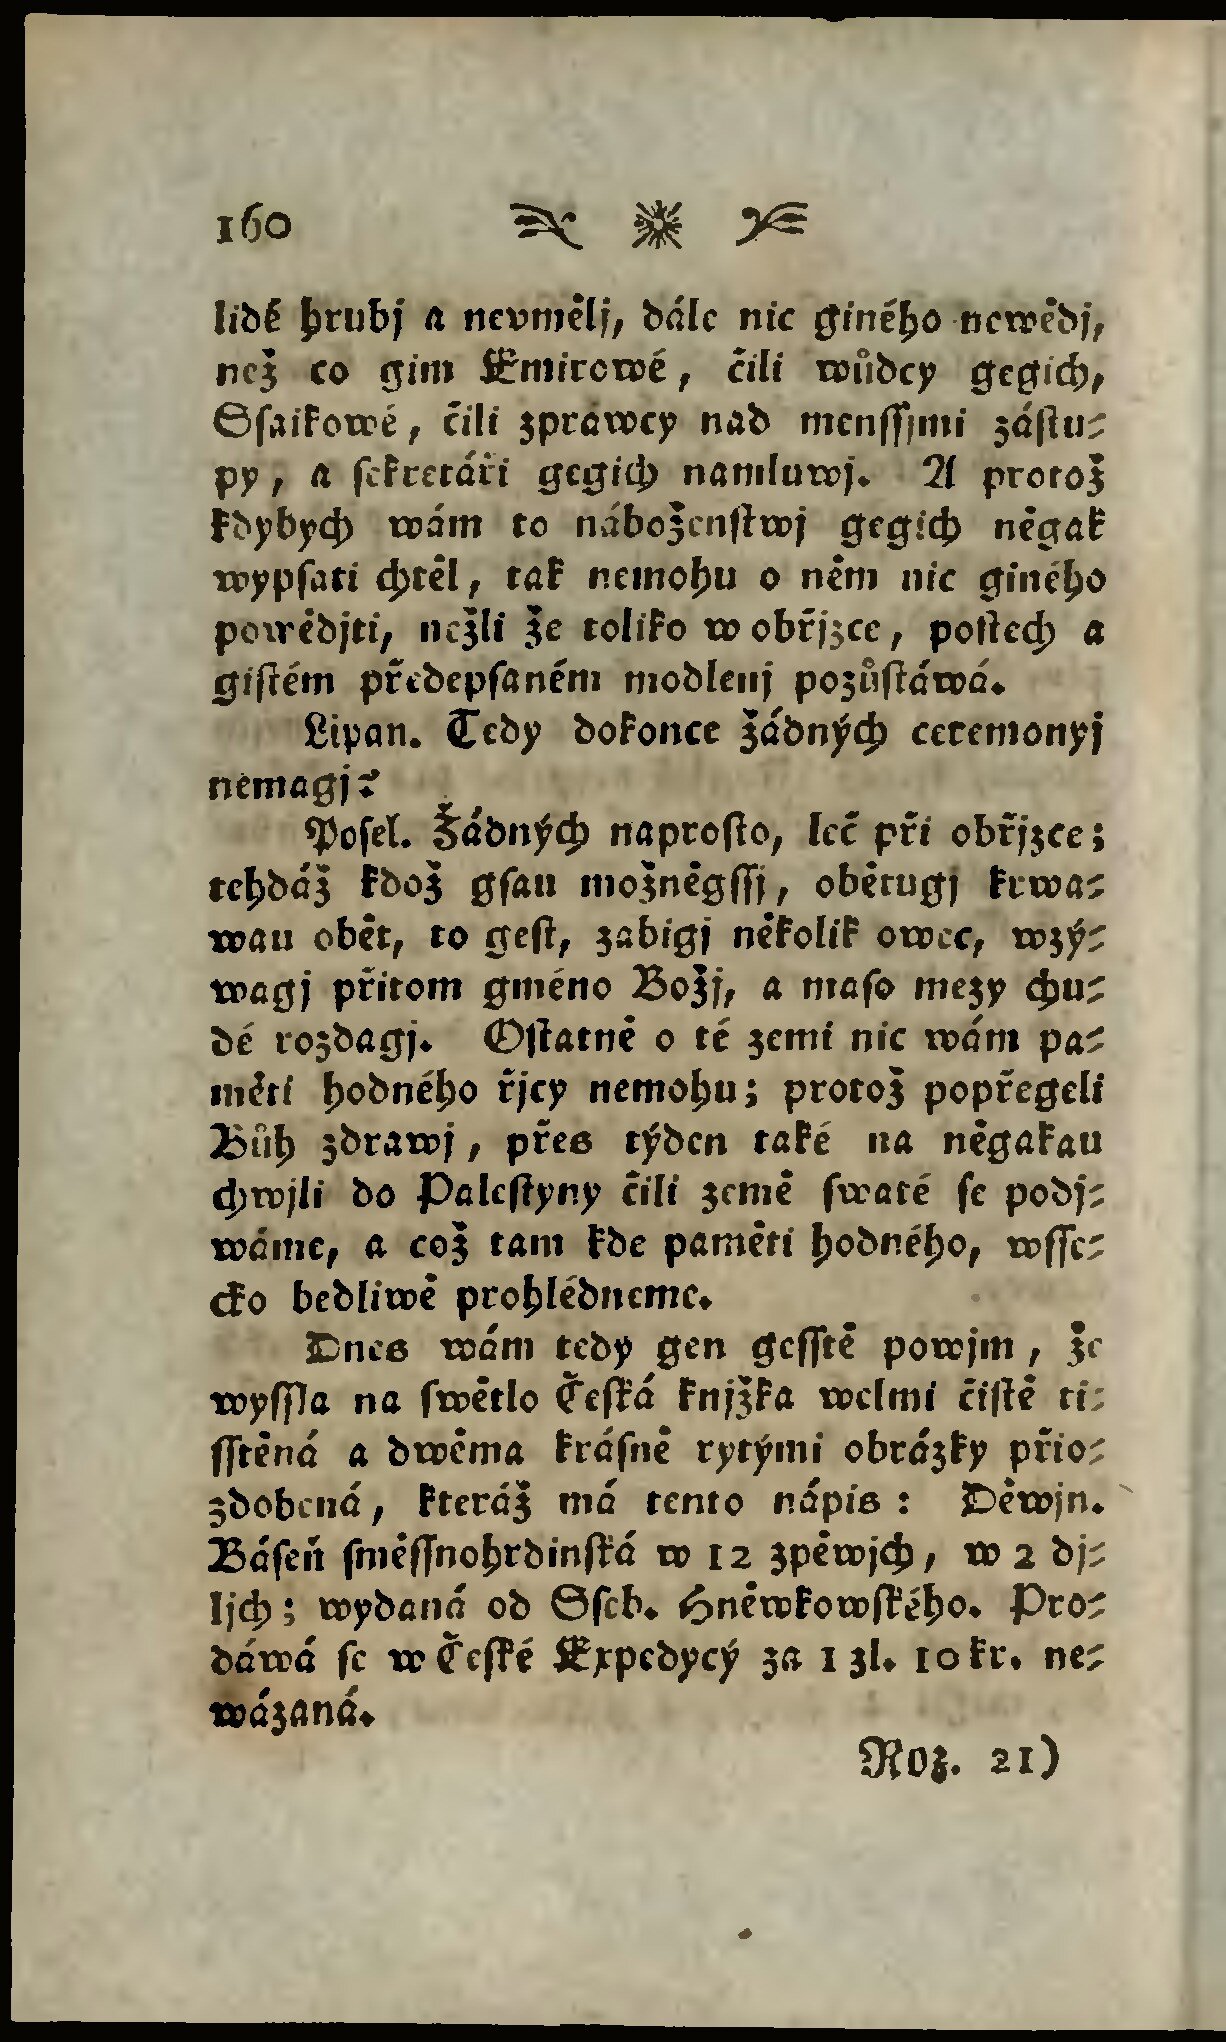 160
lidé hrubj a nevmělj, dále nic giného newědj,
než co gim Emirowé, čili wůdcy gegich,
Ssaikowé, čili zpráwcy nad menssjmi zástu-
py, a sekretáři gegich namluwj. A protož
kdybych wám to náboženstwj gegich něgak
wypsati chtěl, tak nemohu o něm nic giného
powědjti, nežli že toliko w obřjzce, postech a
gistém předepsaném modlenj pozůstáwá.
Lipan. Tedy dokonce žádných ceremonyj
nemagj?
Posel. Žádných naprosto, leč při obřjzce;
tehdáž kdož gsau možněgssj, obětugj krwa-
wau obět, to gest, zabigj několik owec, wzý-
wagj přitom gméno Božj, a maso mezy chu-
dé rozdagj. Ostatně o té zemi nic wám pa-
měti hodného řjcy nemohu; protož popřegeli
Bůh zdrawj, přes týden také na něgakau
chwjli do Palestyny čili země swaté se podj-
wáme, a což tam kde paměti hodného, wsse-
cko bedliwě prohlédneme.
Dnes wám tedy gen gesstě powjm, že
wyssla na swětlo Česká knjžka welmi čistě ti-
sstěná a dwěma krásně rytými obrázky přio-
zdobená, kteráž má tento nápis: Děwjn.
Báseň směssnohrdinská w 12 zpěwjch, w 2 dj-
ljch; wydaná od Sseb. Hněwkowského. Pro-
dáwá se w České Expedycý za 1 zl. 10 kr. ne-
wázaná.
Roz. 21)